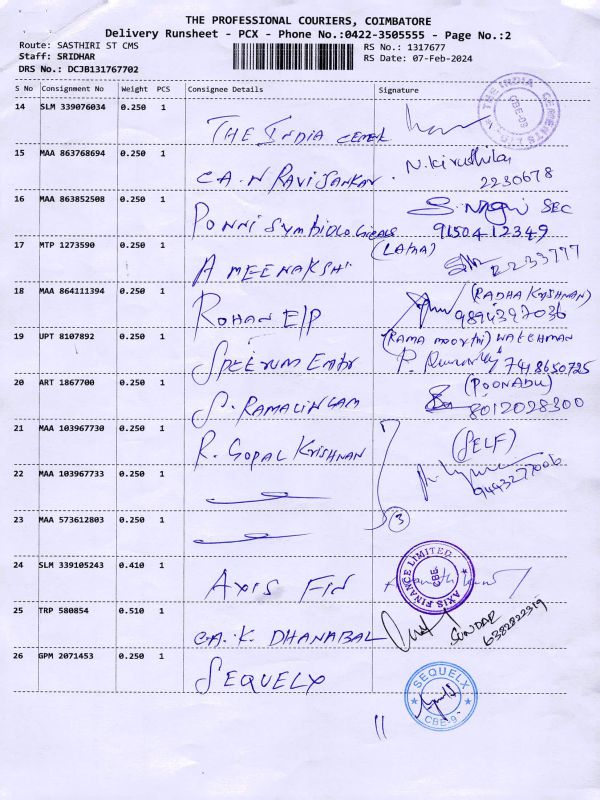 THE PROFESSIONAL COURIERS, COIMBATORE
Delivery Runsheet - PCX - Phone No.:0422-3505555 - Page No.:2
Route: SASTHIRI ST CMS
RS No.: 1317677
Staff: SRIDHAR
RS Date: 07-Feb-2024
DRS No.: DCJB131767702
S No Consignment No Weight PCS Consignee Details Signature
14 SLM 339076034 0.250 1
THE INDIA
THE INDIA CEMENTS LTD. CBE-09
15 MAA 863768694 0.250 1
C.A. N RAVISANKAR. N. Kiruthika
2230678
16 MAA 863852508 0.250 1
PONNI SYMBIOLOGICALS S. NAGU SEC
9150412349
17 MTP 1273590 0.250 1
A MEENAKSHI (LATHA) 2233777
18 MAA 864111394 0.250 1
ROHAN E/P (RADHA KRISHNAN)
9894397036
19 UPT 8107892 0.250 1
(RAMA MOORTHI) WATCHMAN
7418650725
20 ART 1867700 0.250 1
S. RAMALINGAM (POONABU)
8012028300
21 MAA 103967730 0.250 1
R. GOPAL KRISHNAN (SELF)
9443277006
22 MAA 103967733 0.250 1
23 MAA 573612803 0.250 1
3
24 SLM 339105243 0.410 1
AXIS FIN
AXIS FINANCE LIMITED CBE
25 TRP 580854 0.510 1
CA. K. DHANABAL SUNDAR
6382822319
26 GPM 2071453 0.250 1
SEQUELX
SEQUELX CBE-9